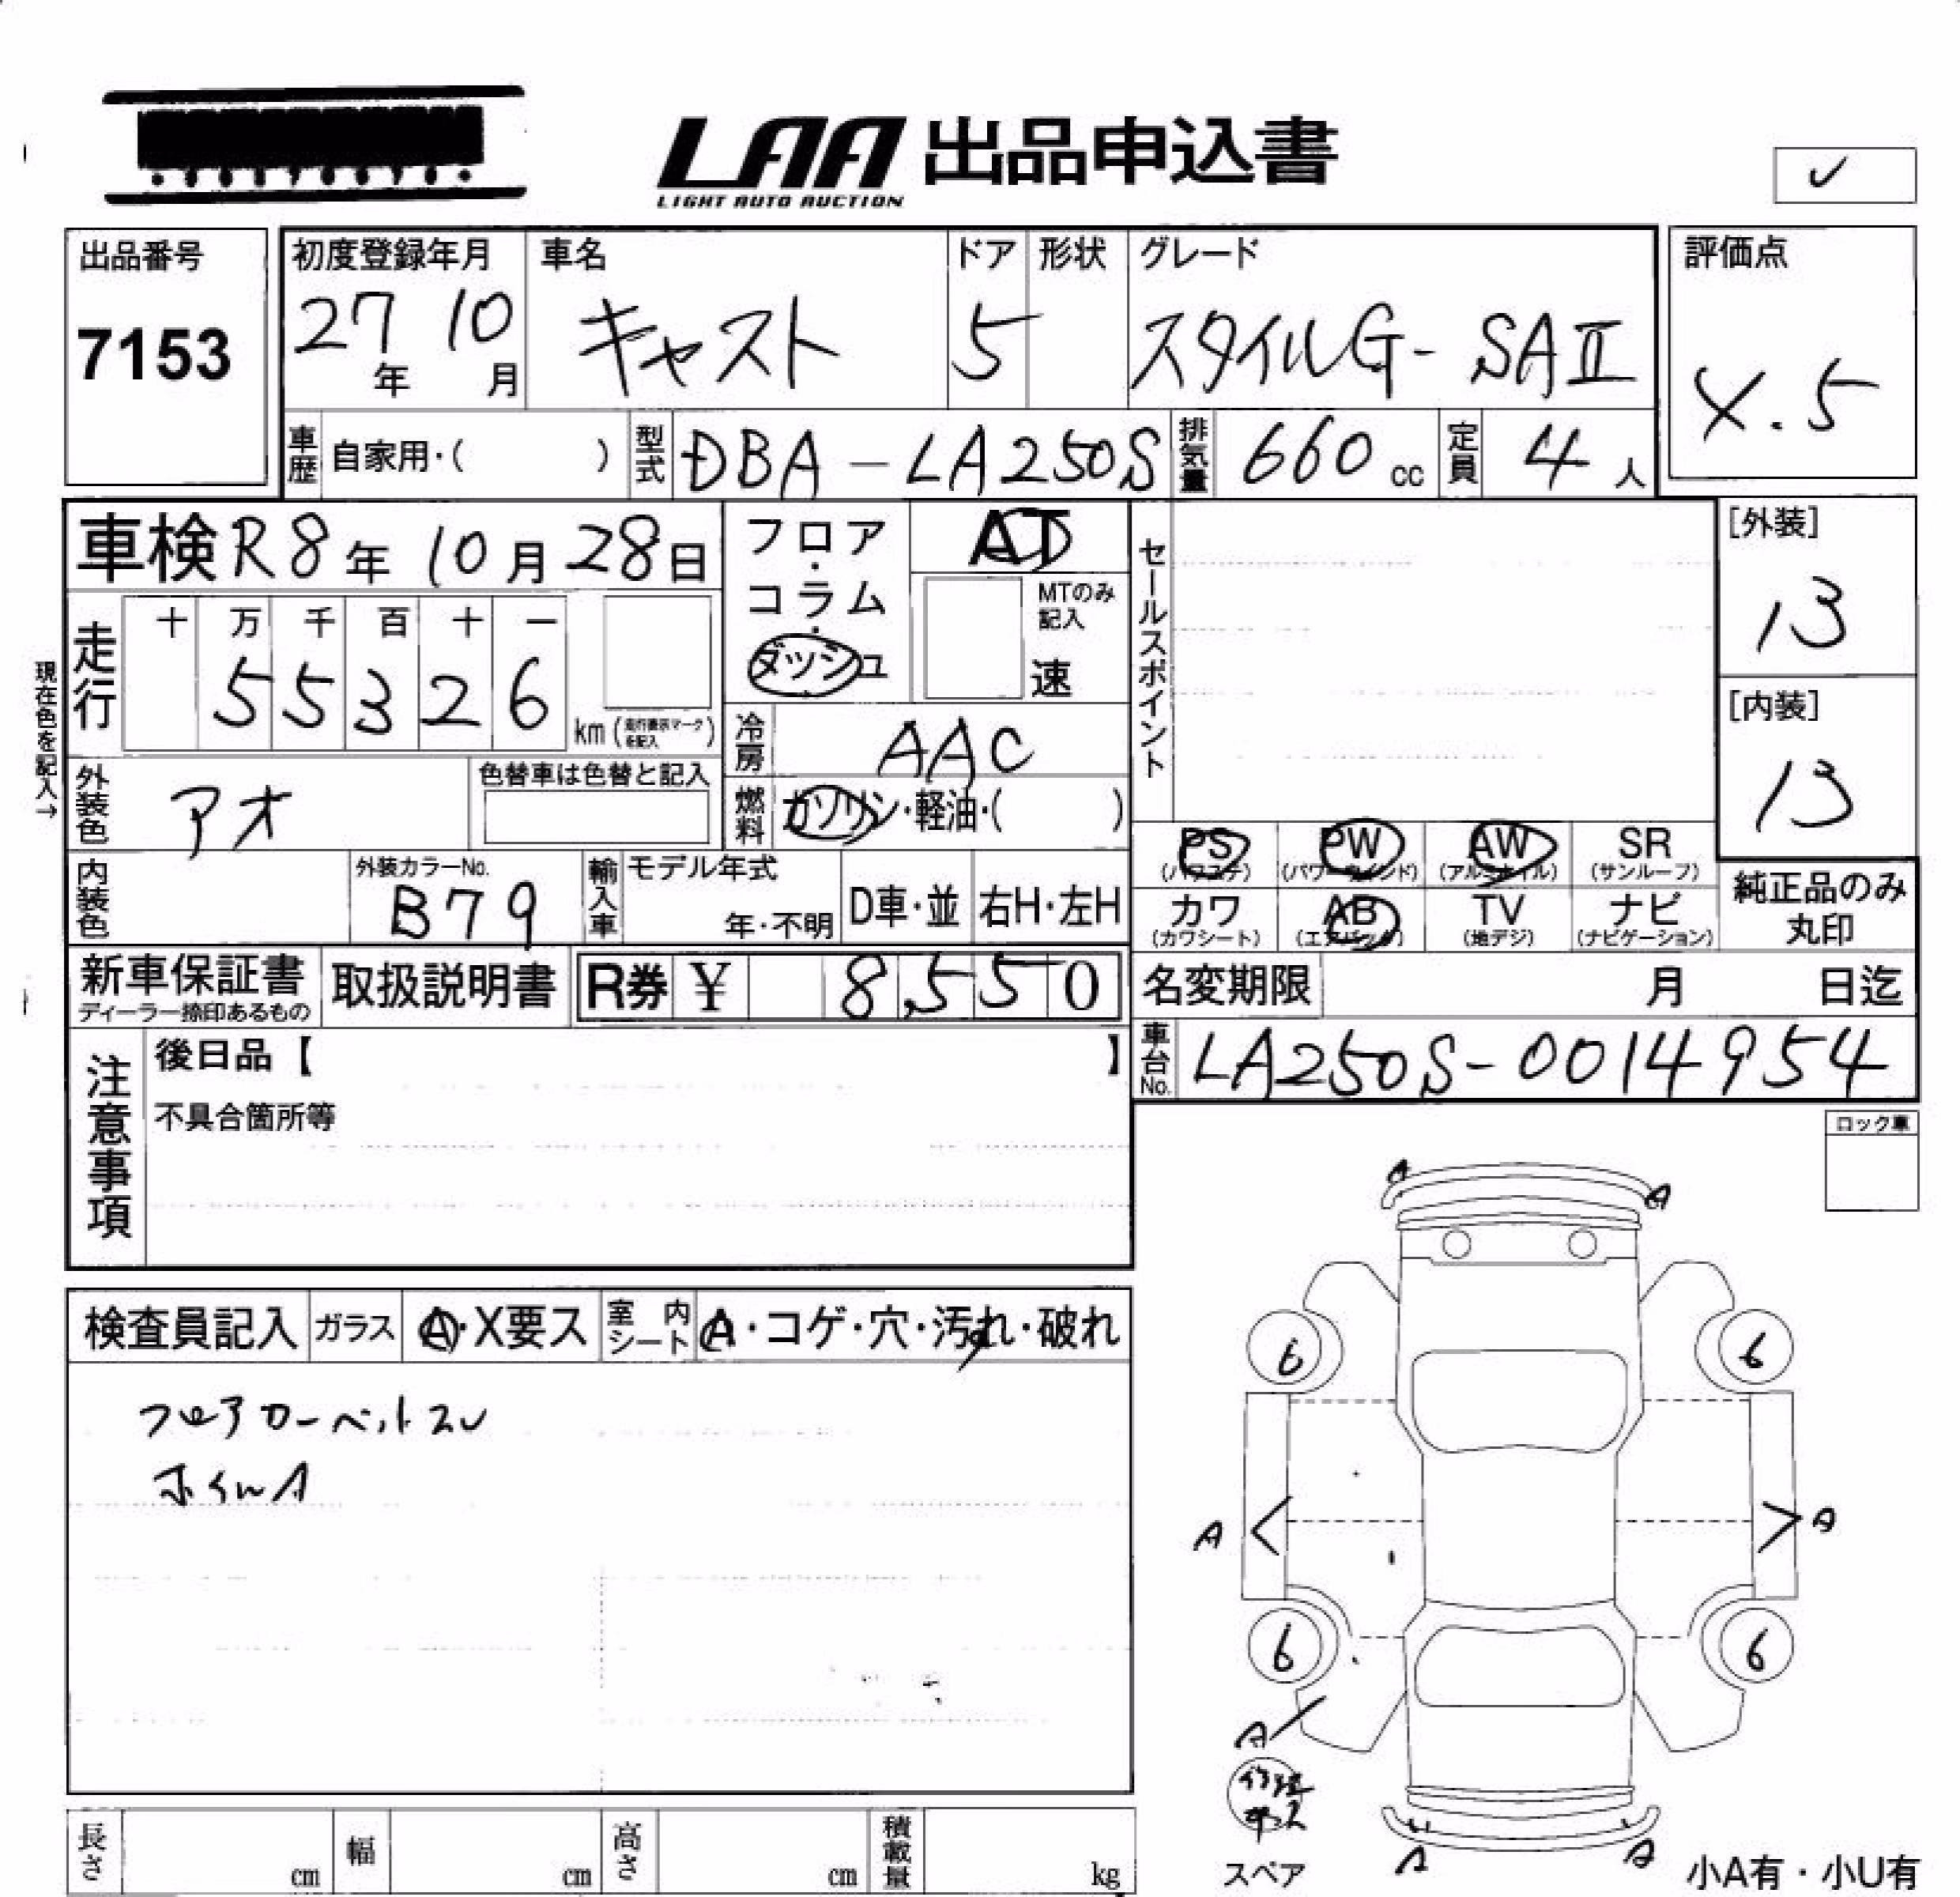 LAA 出品申込書
LIGHT AUTO AUCTION
✓
出品番号
7153
初度登録年月
27年 10月
車名
キャスト
ドア
5
形状
グレード
スタイルG-SAⅡ
評価点
4.5
車歴 自家用・( )
型式 DBA-LA250S
排気量 660cc
定員 4人
車検 R8年 10月 28日
フロア・コラム・ダッシュ
AT
MTのみ記入
速
セールスポイント
[外装]
13
[内装]
13
現在色を記入→
走行
十 万 千 百 十 一
5 5 3 2 6
km (走行表示マークを記入)
冷房 AAC
外装色 アオ
色替車は色替と記入
燃料 ガソリン・軽油・( )
内装色
外装カラーNo.
B79
輸入車
モデル年式
年・不明
D車・並
右H・左H
PS PW AW SR
(パワステ) (パワーウインド) (アルミホイル) (サンルーフ)
カワ AB TV ナビ
(カワシート) (エアバック) (地デジ) (ナビゲーション)
純正品のみ
丸印
新車保証書
ディーラー捺印あるもの
取扱説明書
R券 ¥ 8,550
名変期限 月 日迄
車台No. LA250S-0014954
注意事項
後日品【 】
不具合箇所等
ロック車
検査員記入
ガラス A・X要ス
室内シート A・コゲ・穴・汚れ・破れ
フロアカーペットスレ
ホイルA
A A
6 6
A A
6 6
A
修理キット
スペア
A A
長さ cm
幅 cm
高さ cm
積載量 kg
小A有・小U有